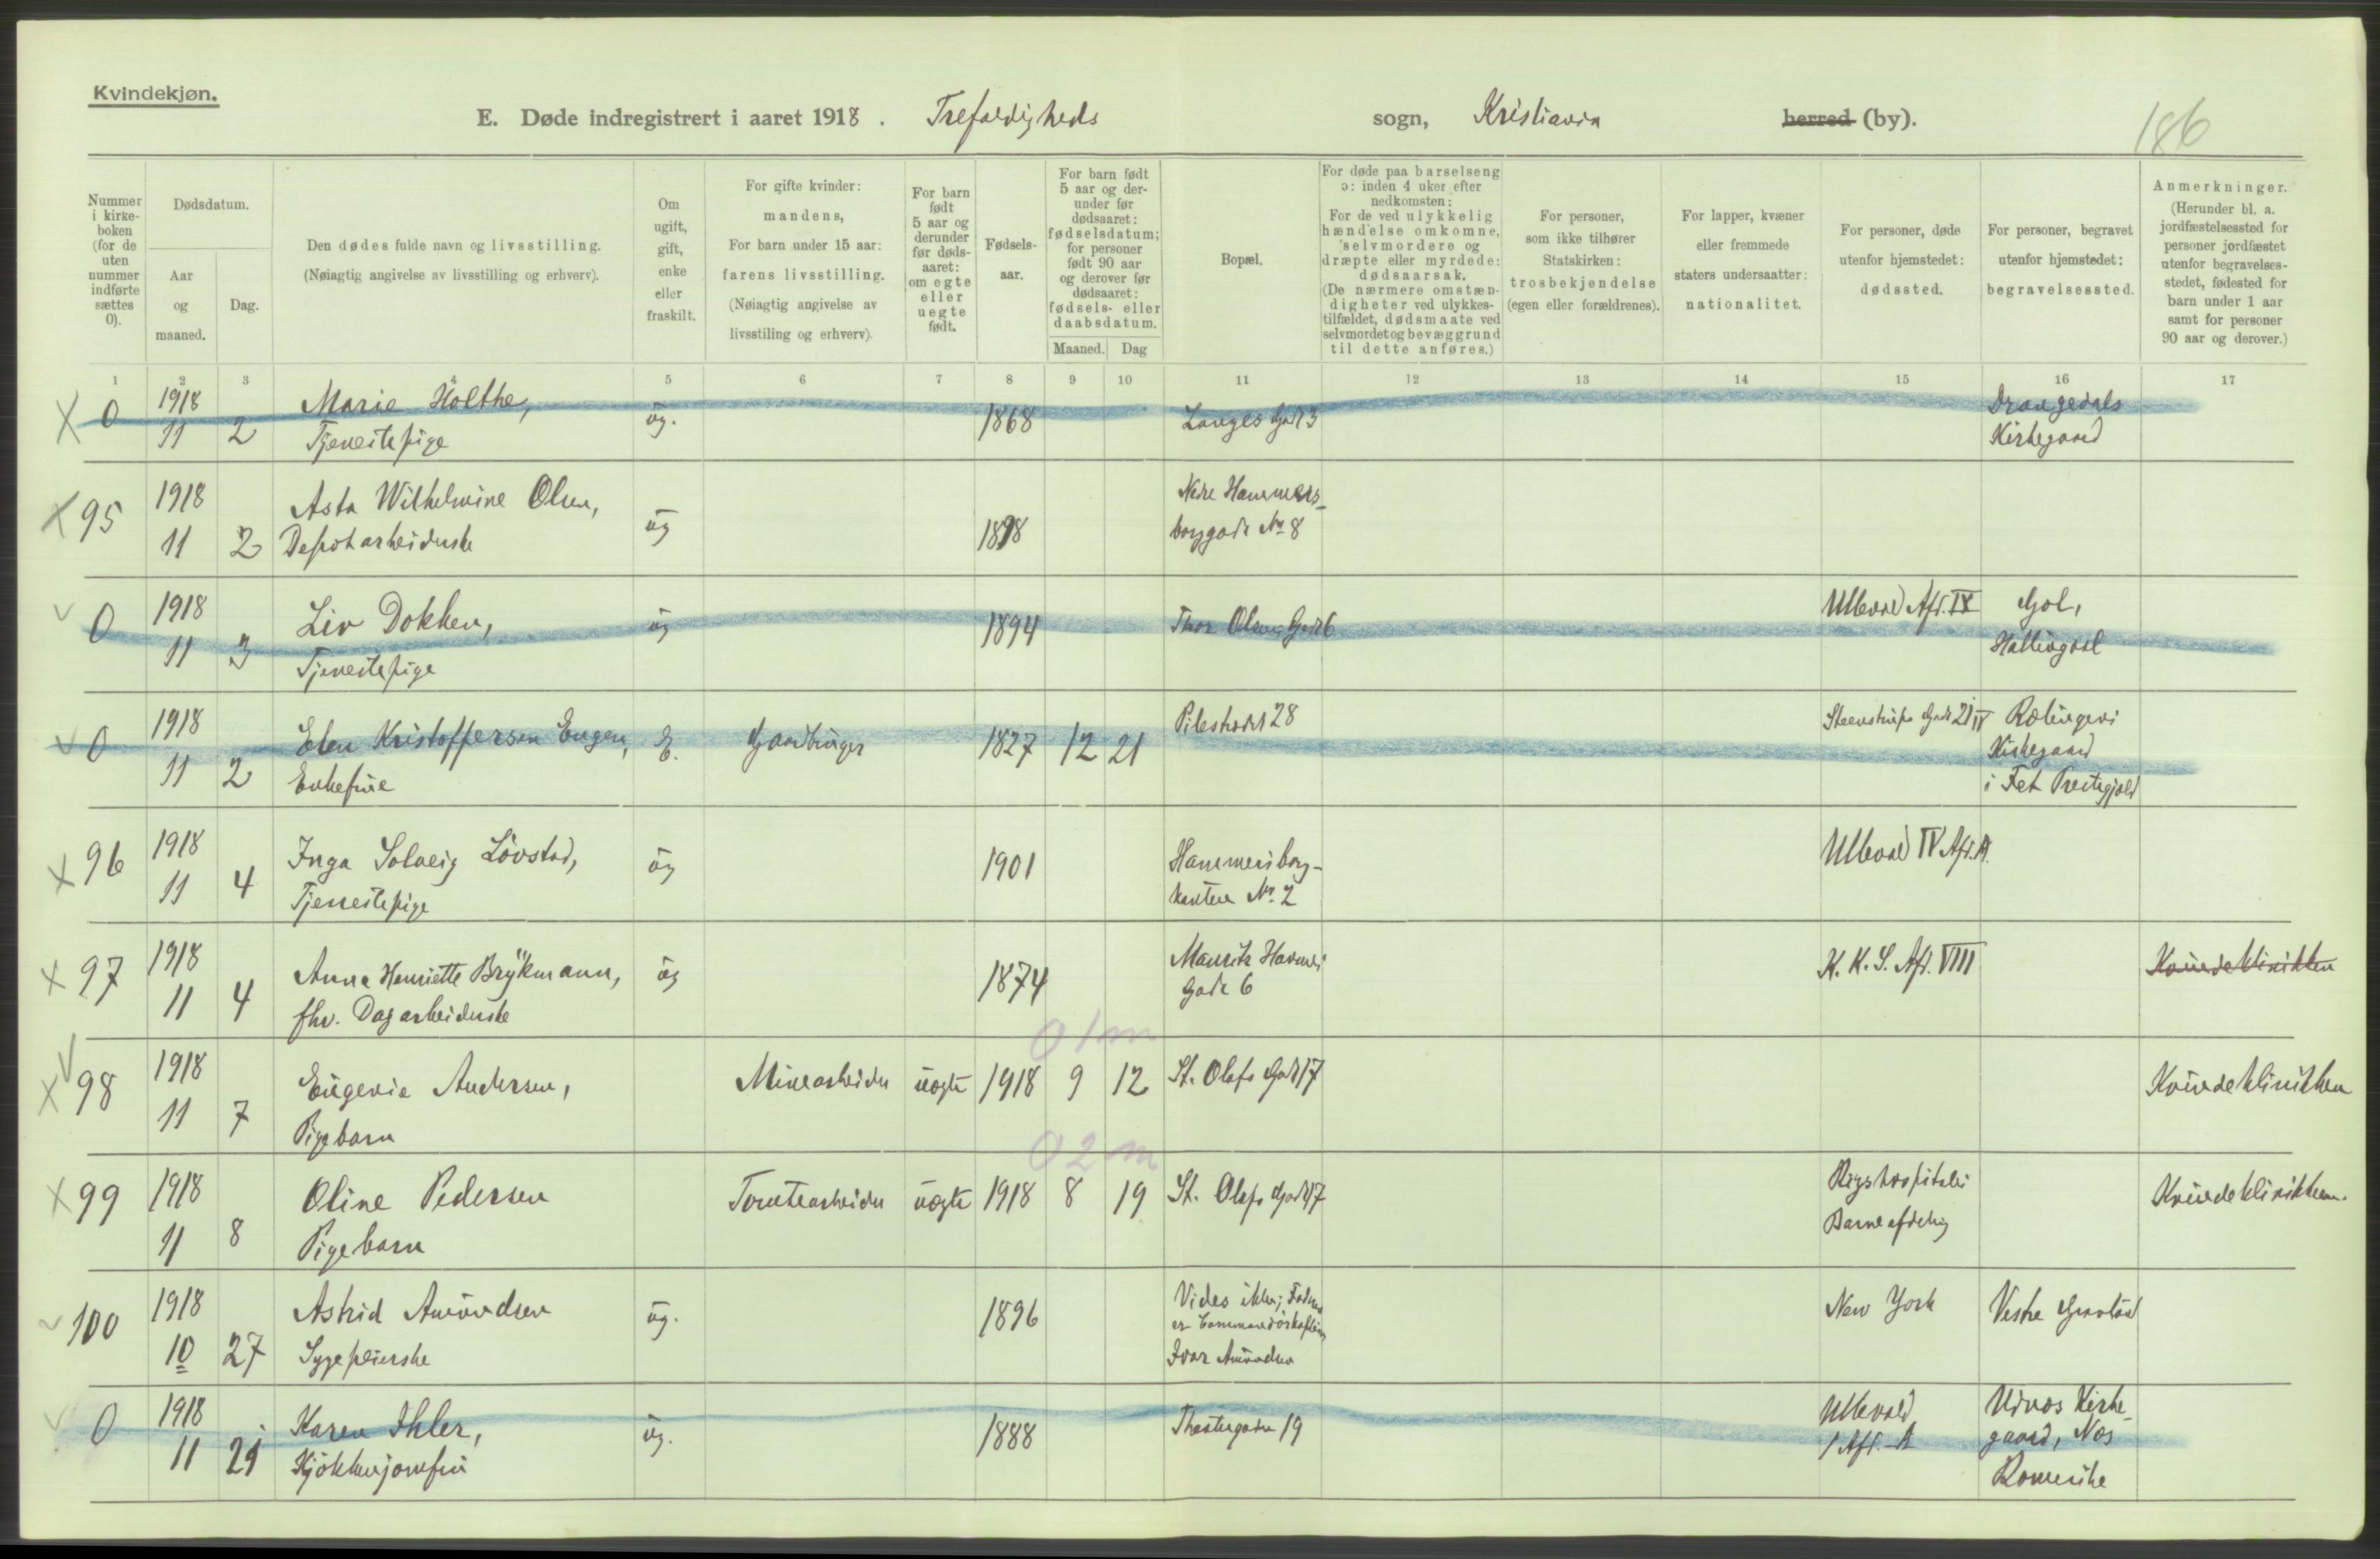 Kvindekjøn.
E. Døde indregistrert i aaret 1918. Trefoldigheds sogn, Kristiania herred (by).
186
Nummer i kirke-boken (for de uten nummer indførte sættes 0).
Dødsdatum.
Aar og maaned.
Dag.
Den dødes fulde navn og livsstilling.
(Nøiagtig angivelse av livsstilling og erhverv).
Om ugift, gift, enke eller fraskilt.
For gifte kvinder: mandens,
For barn under 15 aar: farens livsstilling.
(Nøiagtig angivelse av livsstiling og erhverv).
For barn født 5 aar og derunder før døds-aaret: om egte eller uegte født.
Fødsels-aar.
For barn født 5 aar og der-under før dødsaaret: fødselsdatum; for personer født 90 aar og derover før dødsaaret: fødsels- eller daabsdatum.
Maaned. Dag
Bopæl.
For døde paa barselseng ɔ: inden 4 uker efter nedkomsten:
For de ved ulykkelig hændelse omkomne, selvmordere og dræpte eller myrdede: dødsaarsak.
(De nærmere omstæn-digheter ved ulykkes-tilfældet, dødsmaate ved selvmordet og bevæggrund til dette anføres.)
For personer, som ikke tilhører Statskirken: trosbekjendelse (egen eller forældrenes).
For lapper, kvæner eller fremmede staters undersaatter: nationalitet.
For personer, døde utenfor hjemstedet: dødssted.
For personer, begravet utenfor hjemstedet: begravelsessted.
Anmerkninger.
(Herunder bl. a. jordfæstelsessted for personer jordfæstet utenfor begravelses-stedet, fødested for barn under 1 aar samt for personer 90 aar og derover.)
1 2 3 4 5 6 7 8 9 10 11 12 13 14 15 16 17
X 0 1918 11 2 Marie Holthe, ug. 1868 Langes Gade 3 Drangedals
Tjenestepige Kirkegaard
X 95 1918 11 2 Asta Wilhelmine Olsen, ug 1898 Nedre Hammers-
Depotarbeiderske borggade No 8
0 1918 11 3 Liv Dokken, ug 1894 Thor Olsens Gade 6 Ullevaal Afd. IX Gol,
Tjenestepige Hallingdal
0 1918 11 2 Elen Kristoffersen Engen, E. Gaardbruger 1827 12 21 Pilestrædet 28 Steenstrups Gade 21 IV Rælingen
Enkefrue Kirkegaard
i Fet Prestegjeld
X 96 1918 11 4 Inga Solveig Lövstad, ug 1901 Hammersborg- Ullevaal IV Afd. A.
Tjenestepige No. 2
X 97 1918 11 4 Anna Henriette Brykmann, ug 1874 Mauritz Hansens K. K. S. Afd. VIII Kvindeklinikken
fhv. Dagarbeiderske Gade 6
01m
X 98 1918 11 7 Eugenie Andersen, Minearbeider uegte 1918 9 12 St. Olafs Gade 17 Kvindeklinikken
Pigebarn
02m
X 99 1918 11 8 Oline Pedersen Tomtearbeider uegte 1918 8 19 St. Olafs Gade 17 Rigshospitalets Kvindeklinikken.
Pigebarn Barneafdeling
100 1918 10 27 Astrid Amundsen ug. 1896 Vides ikke; Faderen New York Vestre Gravlund
Sygepleierske er Commandörkaptein
Ivar Amundsen
0 1918 11 21 Karen Ihler, ug. 1888 Theatergaden 19 Ullevaal Udnæs Kirke-
Kjökkenjomfru 1 Afd. A gaard, Nes
Romerike